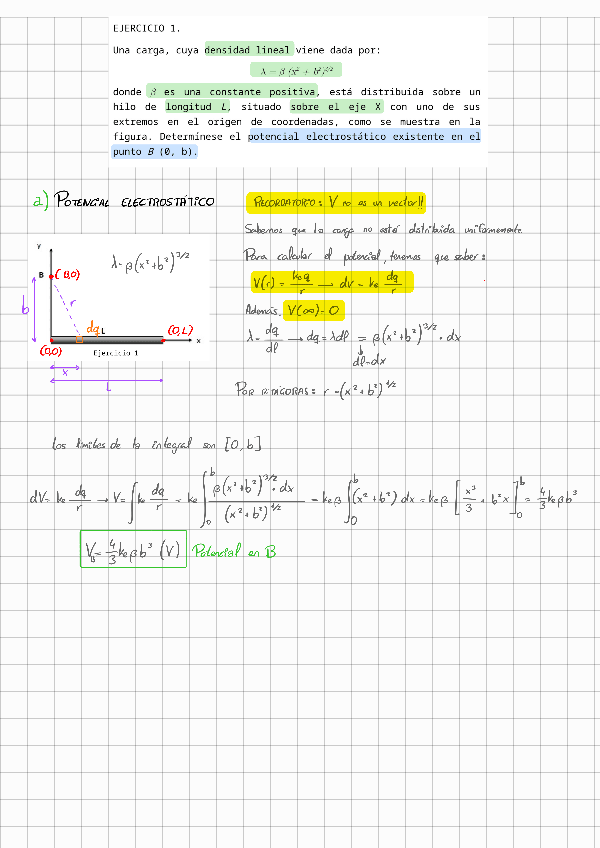 EJERCICIO 1.
Una carga, cuya densidad lineal viene dada por:
λ = β (x² + b²)^3/2
donde β es una constante positiva, está distribuida sobre un
hilo de longitud L, situado sobre el eje X con uno de sus
extremos en el origen de coordenadas, como se muestra en la
figura. Determínese el potencial electrostático existente en el
punto B (0, b).
a) POTENCIAL ELECTROSTÁTICO
RECORDATORIO: V no es un vector!!
Sabemos que la carga no está distribuida uniformemente.
Para calcular el potencial, tenemos que saber:
V(r) = k₀q/r → dV = ke dq/r
Además, V(∞) = 0
λ = dq/dl → dq = λdl = β(x²+b²)^3/2 · dx
dl=dx
POR PITÁGORAS: r = (x²+b²)^1/2
Y
λ = β(x²+b²)^3/2
B
(B,0)
b
r
dq
L
(0,L)
x
(0,0)
Ejercicio 1
x
L
Los límites de la integral son [0, b]
dV = ke dq/r → V = ∫ ke dq/r = ke ∫₀^b β(x²+b²)^3/2 · dx / (x²+b²)^1/2 = keβ ∫₀^b (x²+b²) dx = keβ [x³/3 + b²x]₀^b = 4/3 keβb³
V_B = 4/3 keβb³ (V) Potencial en B